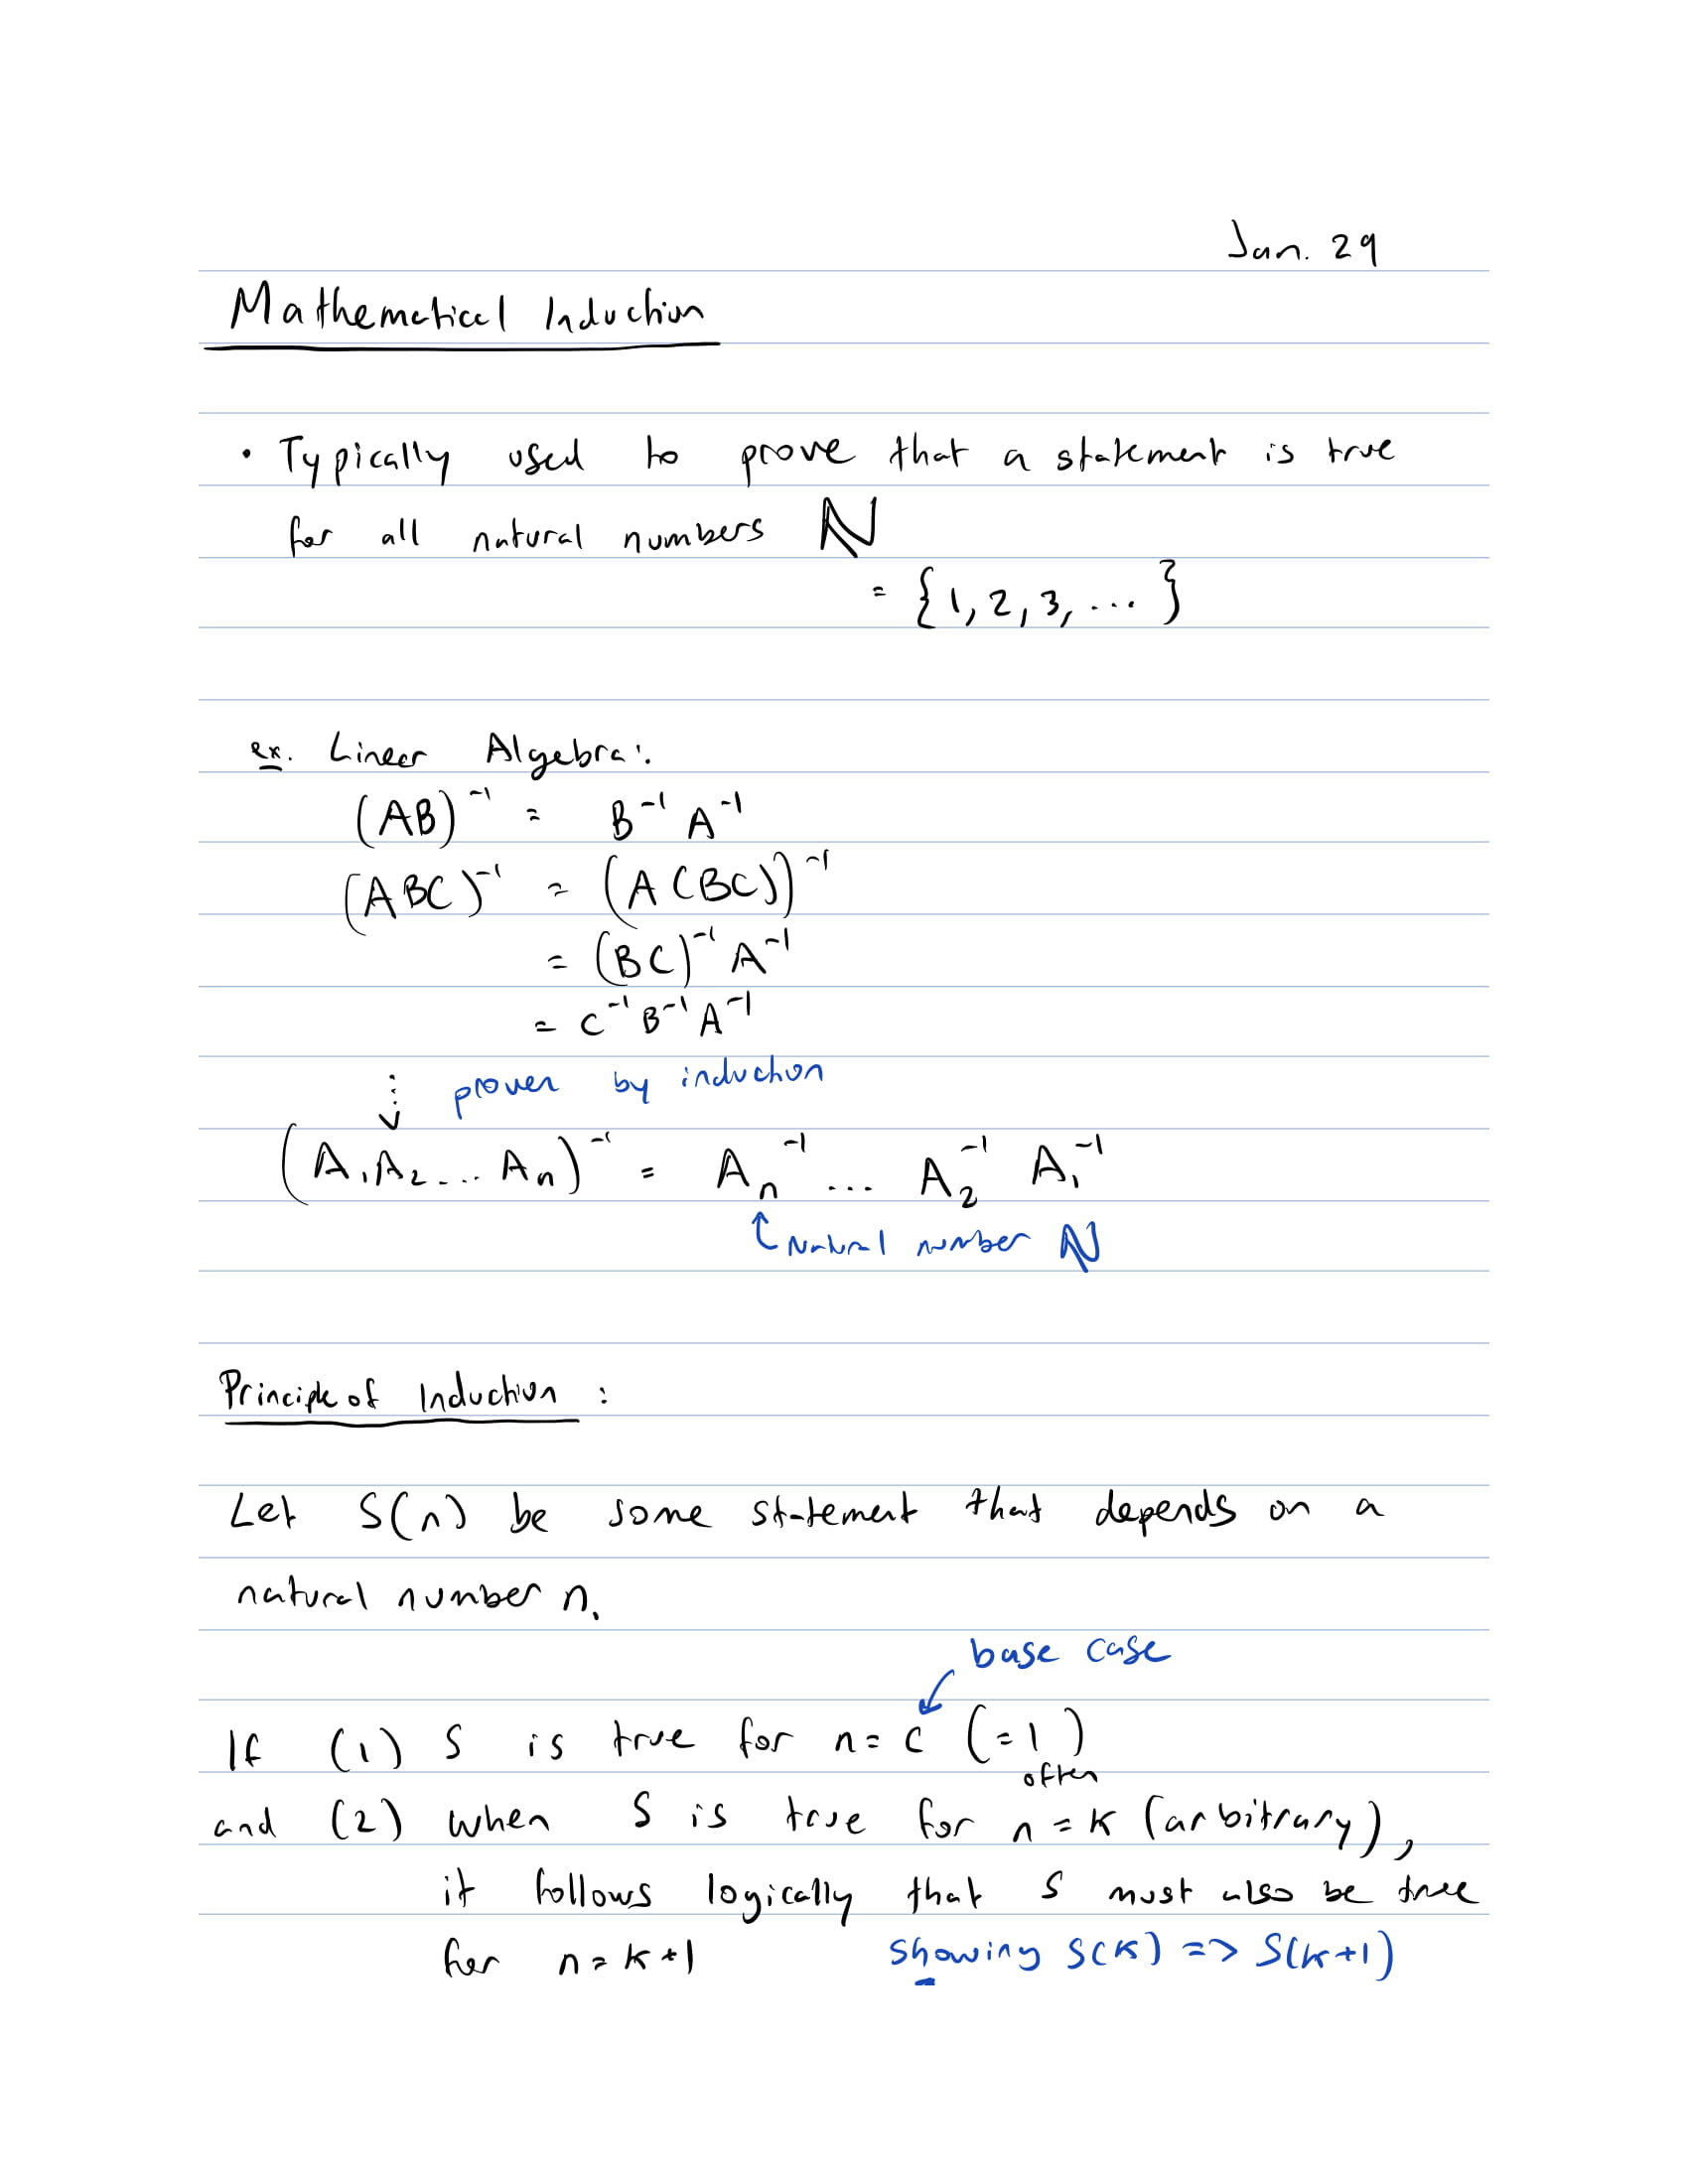 Jan. 29
Mathematical Induction
• Typically used to prove that a statement is true
for all natural numbers ℕ
= {1, 2, 3, ... }
ex. Linear Algebra:
(AB)⁻¹ = B⁻¹ A⁻¹
(ABC)⁻¹ = (A(BC))⁻¹
= (BC)⁻¹ A⁻¹
= C⁻¹ B⁻¹ A⁻¹
⋮ proven by induction
(A₁A₂... Aₙ)⁻¹ = Aₙ⁻¹ ... A₂⁻¹ A₁⁻¹
Natural number ℕ
Principle of Induction :
Let S(n) be some statement that depends on a
natural number n.
base case
If (1) S is true for n = c (=1)
often
and (2) when S is true for n = k (arbitrary),
it follows logically that S must also be true
for n = k+1 showing S(k) => S(k+1)